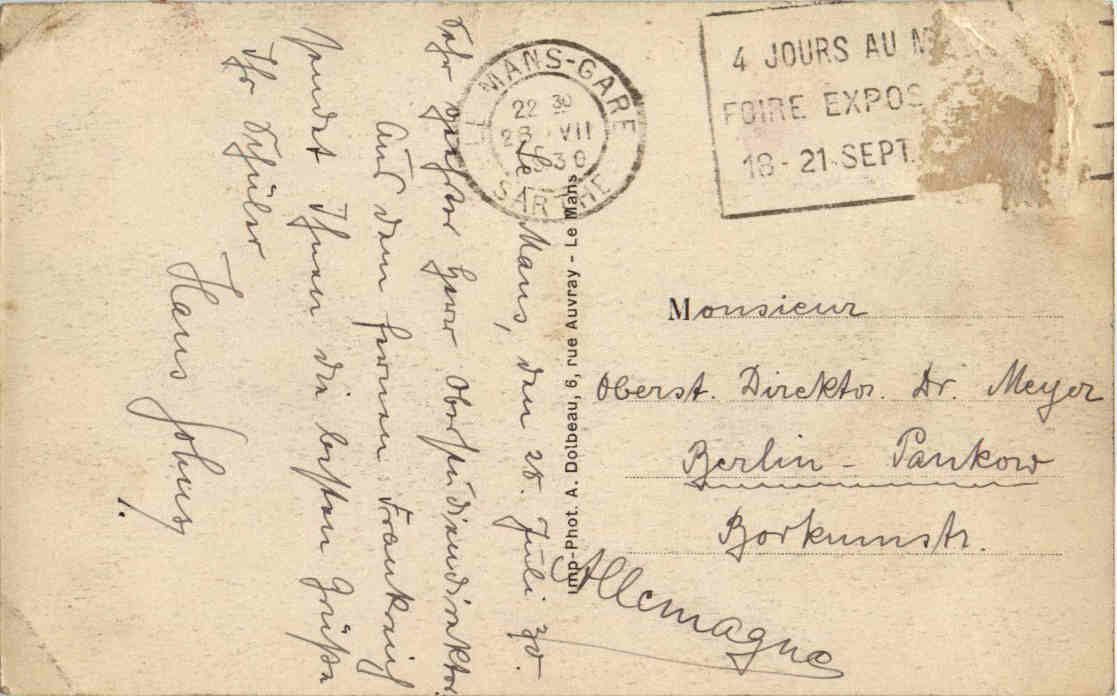 LE MANS-GARE
22 30
28 VII
30
SARTHE
4 JOURS AU M
FOIRE EXPOS
18-21 SEPT.
Le Mans, den 28. Juli 30.
Sehr geehrter Herr Oberstudiendirektor
Aus dem fernen Frankreich
sendet Ihnen die besten Grüße
Ihr Schüler
Hans
Imp-Phot. A. Dolbeau, 6, rue Auvray - Le Mans
Monsieur
Oberst. Direktor. Dr. Meyer
Berlin - Pankow
Borkumstr.
Allemagne